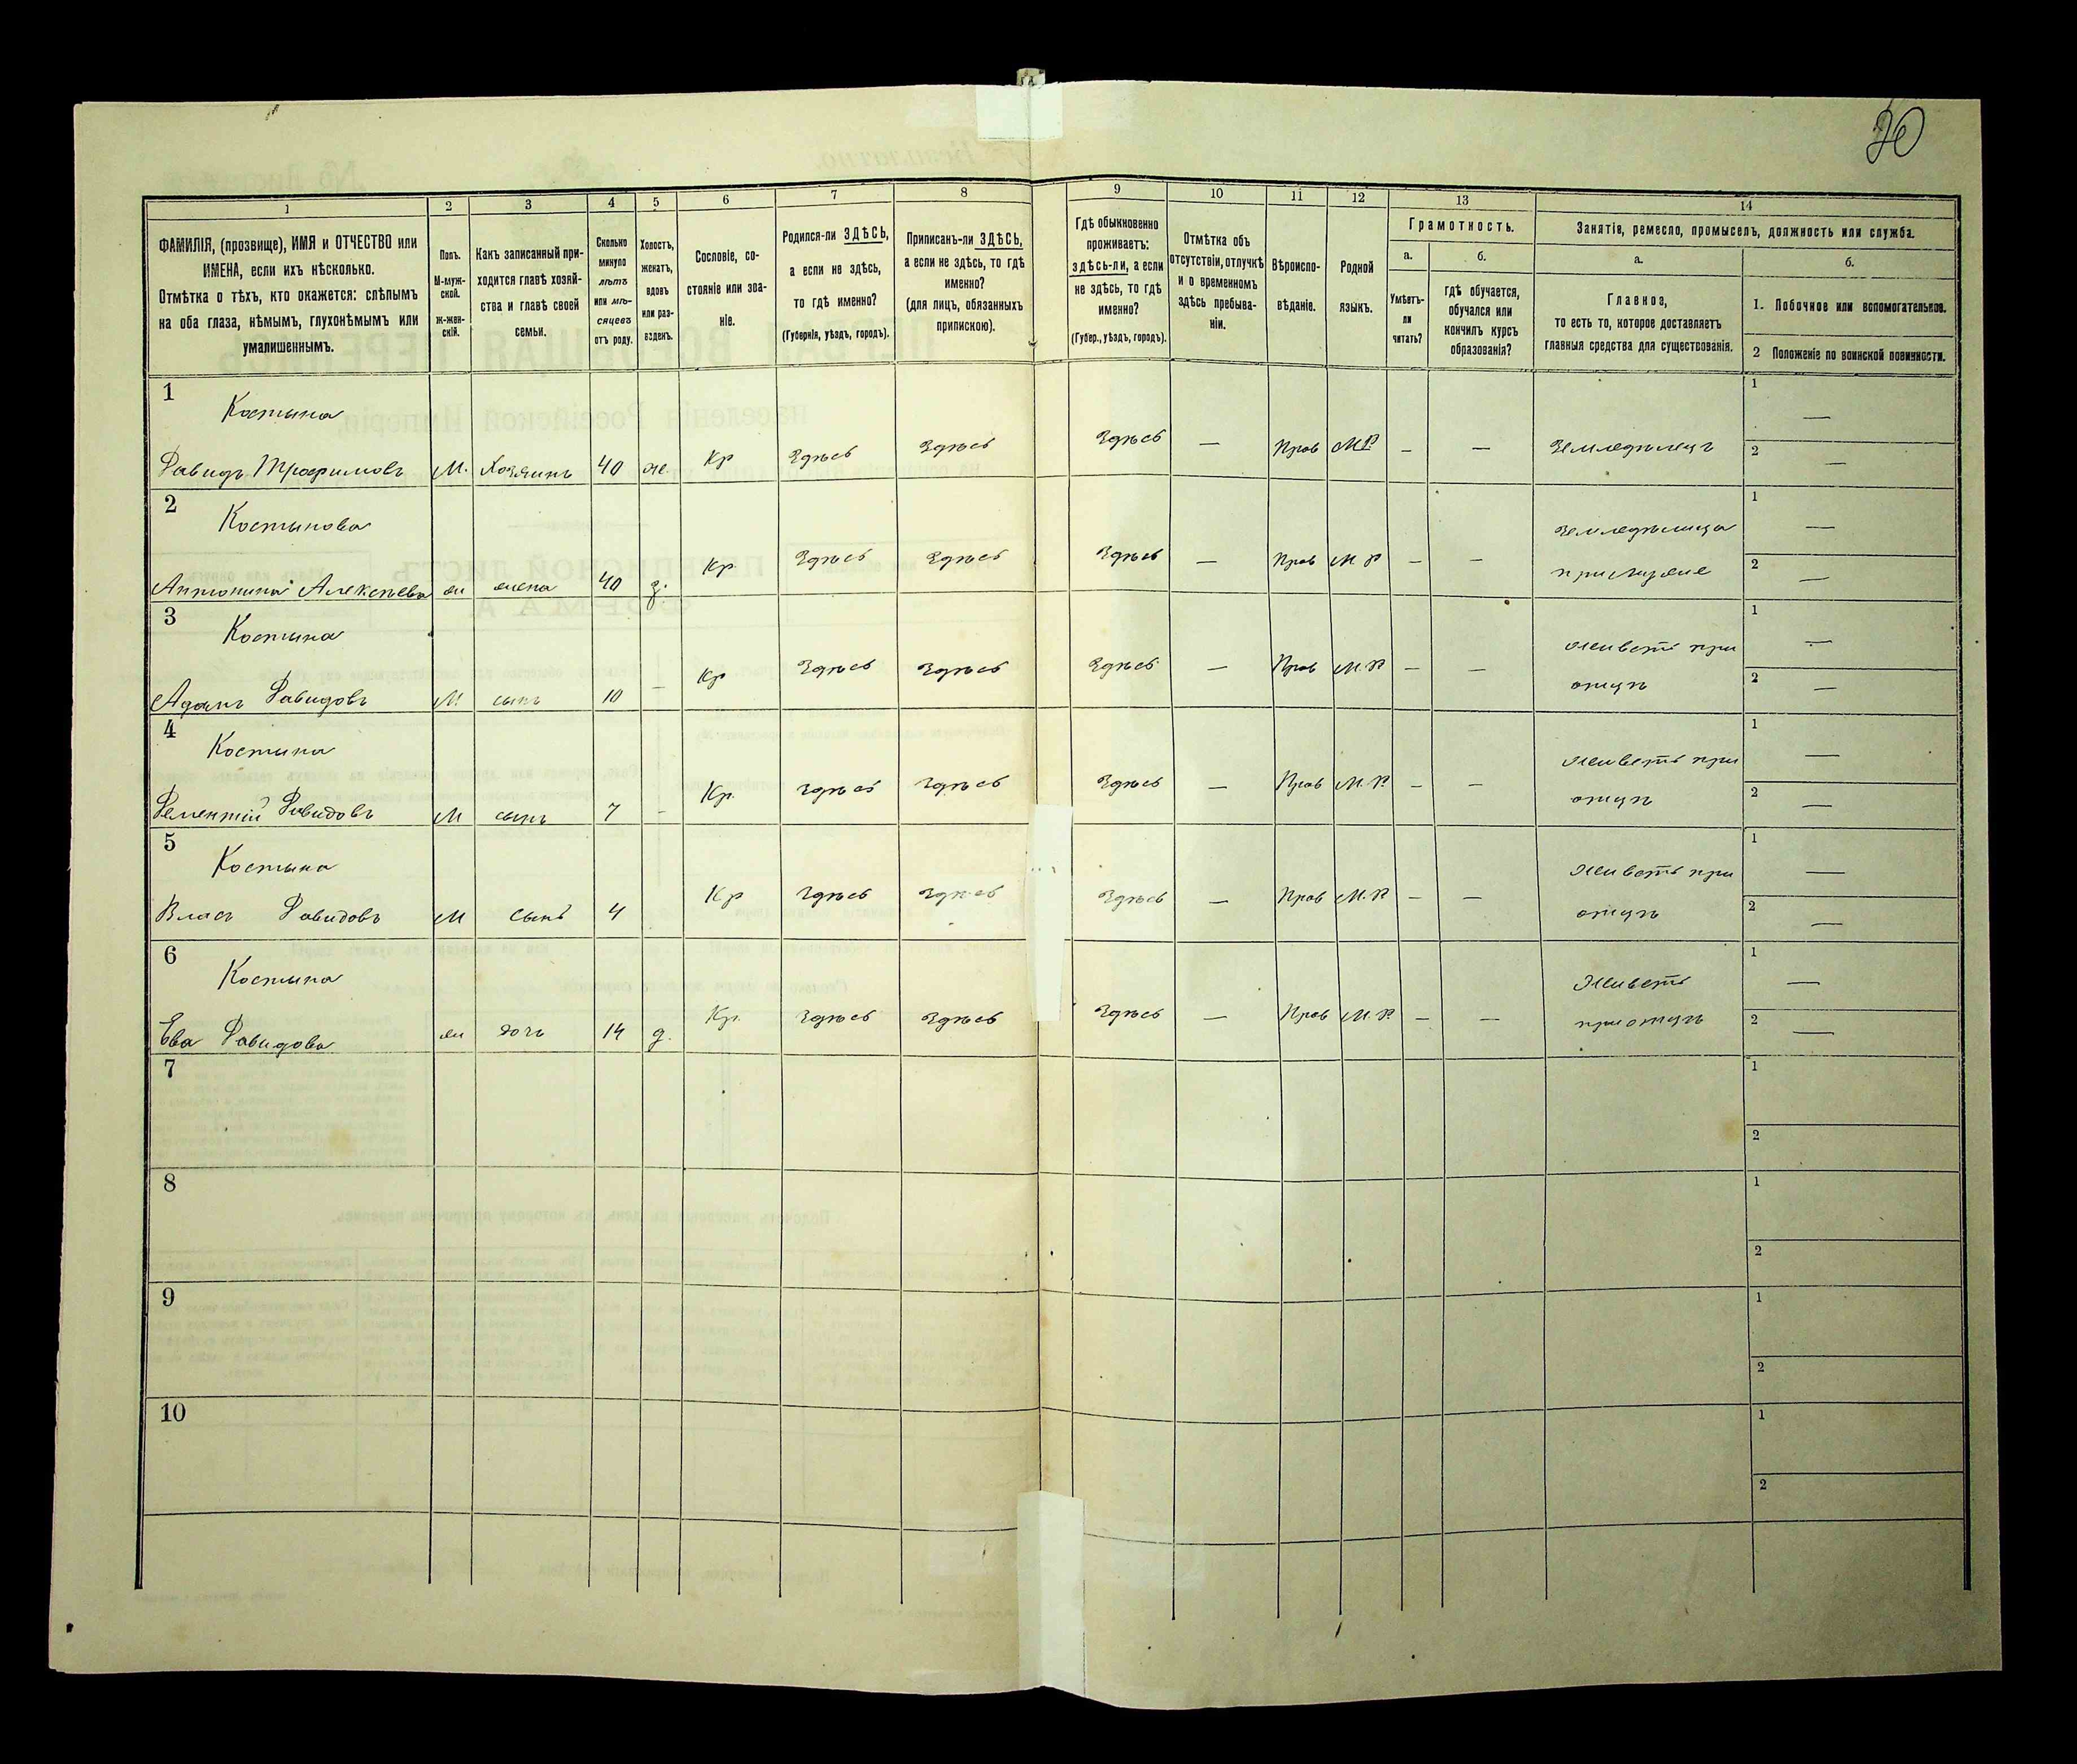 20
1 2 3 4 5 6 7 8 9 10 11 12 13 14
ФАМИЛІЯ, (прозвище), ИМЯ и ОТЧЕСТВО или
ИМЕНА, если ихъ нѣсколько.
Отмѣтка о тѣхъ, кто окажется: слѣпымъ
на оба глаза, нѣмымъ, глухонѣмымъ или
умалишеннымъ.
Полъ.
М-муж-
ской.
ж-жен-
скій.
Какъ записанный при-
ходится главѣ хозяй-
ства и главѣ своей
семьи.
Сколько
минуло
лѣтъ
или мѣ-
сяцевъ
отъ роду.
Холостъ,
женатъ,
вдовъ
или раз-
веденъ.
Сословіе, со-
стояніе или зва-
ніе.
Родился-ли ЗДѢСЬ,
а если не здѣсь,
то гдѣ именно?
(Губернія, уѣздъ, городъ).
Приписанъ-ли ЗДѢСЬ,
а если не здѣсь, то гдѣ
именно?
(для лицъ, обязанныхъ
припискою).
Гдѣ обыкновенно
проживаетъ:
здѣсь-ли, а если
не здѣсь, то гдѣ
именно?
(Губер., уѣздъ, городъ).
Отмѣтка объ
отсутствіи, отлучкѣ
и о временномъ
здѣсь пребыва-
ніи.
Вѣроиспо-
вѣданіе.
Родной
языкъ.
Грамотность.
а.
Умѣетъ-
ли
читать?
б.
Гдѣ обучается,
обучался или
кончилъ курсъ
образованія?
Занятіе, ремесло, промыселъ, должность или служба.
а.
Главное,
то есть то, которое доставляетъ
главныя средства для существованія.
б.
1. Побочное или вспомогательное.
2 Положеніе по воинской повинности.
1
Костына
Давидъ Трофимовъ М. Хозяинъ 40 ж. Кр Здѣсь Здѣсь Здѣсь — Прав М.Р. — — Земледѣлецъ
1 —
2 —
2
Костынова
Антонина Алексѣева ж жена 40 з. Кр Здѣсь Здѣсь Здѣсь — Прав М.Р. — — Земледѣлица
при мужѣ
1 —
2 —
3
Костына
Адамъ Давидовъ М сынъ 10 — Кр Здѣсь Здѣсь Здѣсь — Прав М.Р. — — живетъ при
отцѣ
1 —
2 —
4
Костына
Дементій Давидовъ М сынъ 7 — Кр. Здѣсь Здѣсь Здѣсь — Прав М.Р. — — живетъ при
отцѣ
1 —
2 —
5
Костына
Власъ Давидовъ М сынъ 4 Кр Здѣсь Здѣсь Здѣсь — Прав М.Р. — — живетъ при
отцѣ
1 —
2 —
6
Костына
Ева Давидова ж дочь 14 д. Кр. Здѣсь Здѣсь Здѣсь — Прав М.Р. — — Живетъ
при отцѣ
1 —
2 —
7
1
2
8
1
2
9
1
2
10
1
2